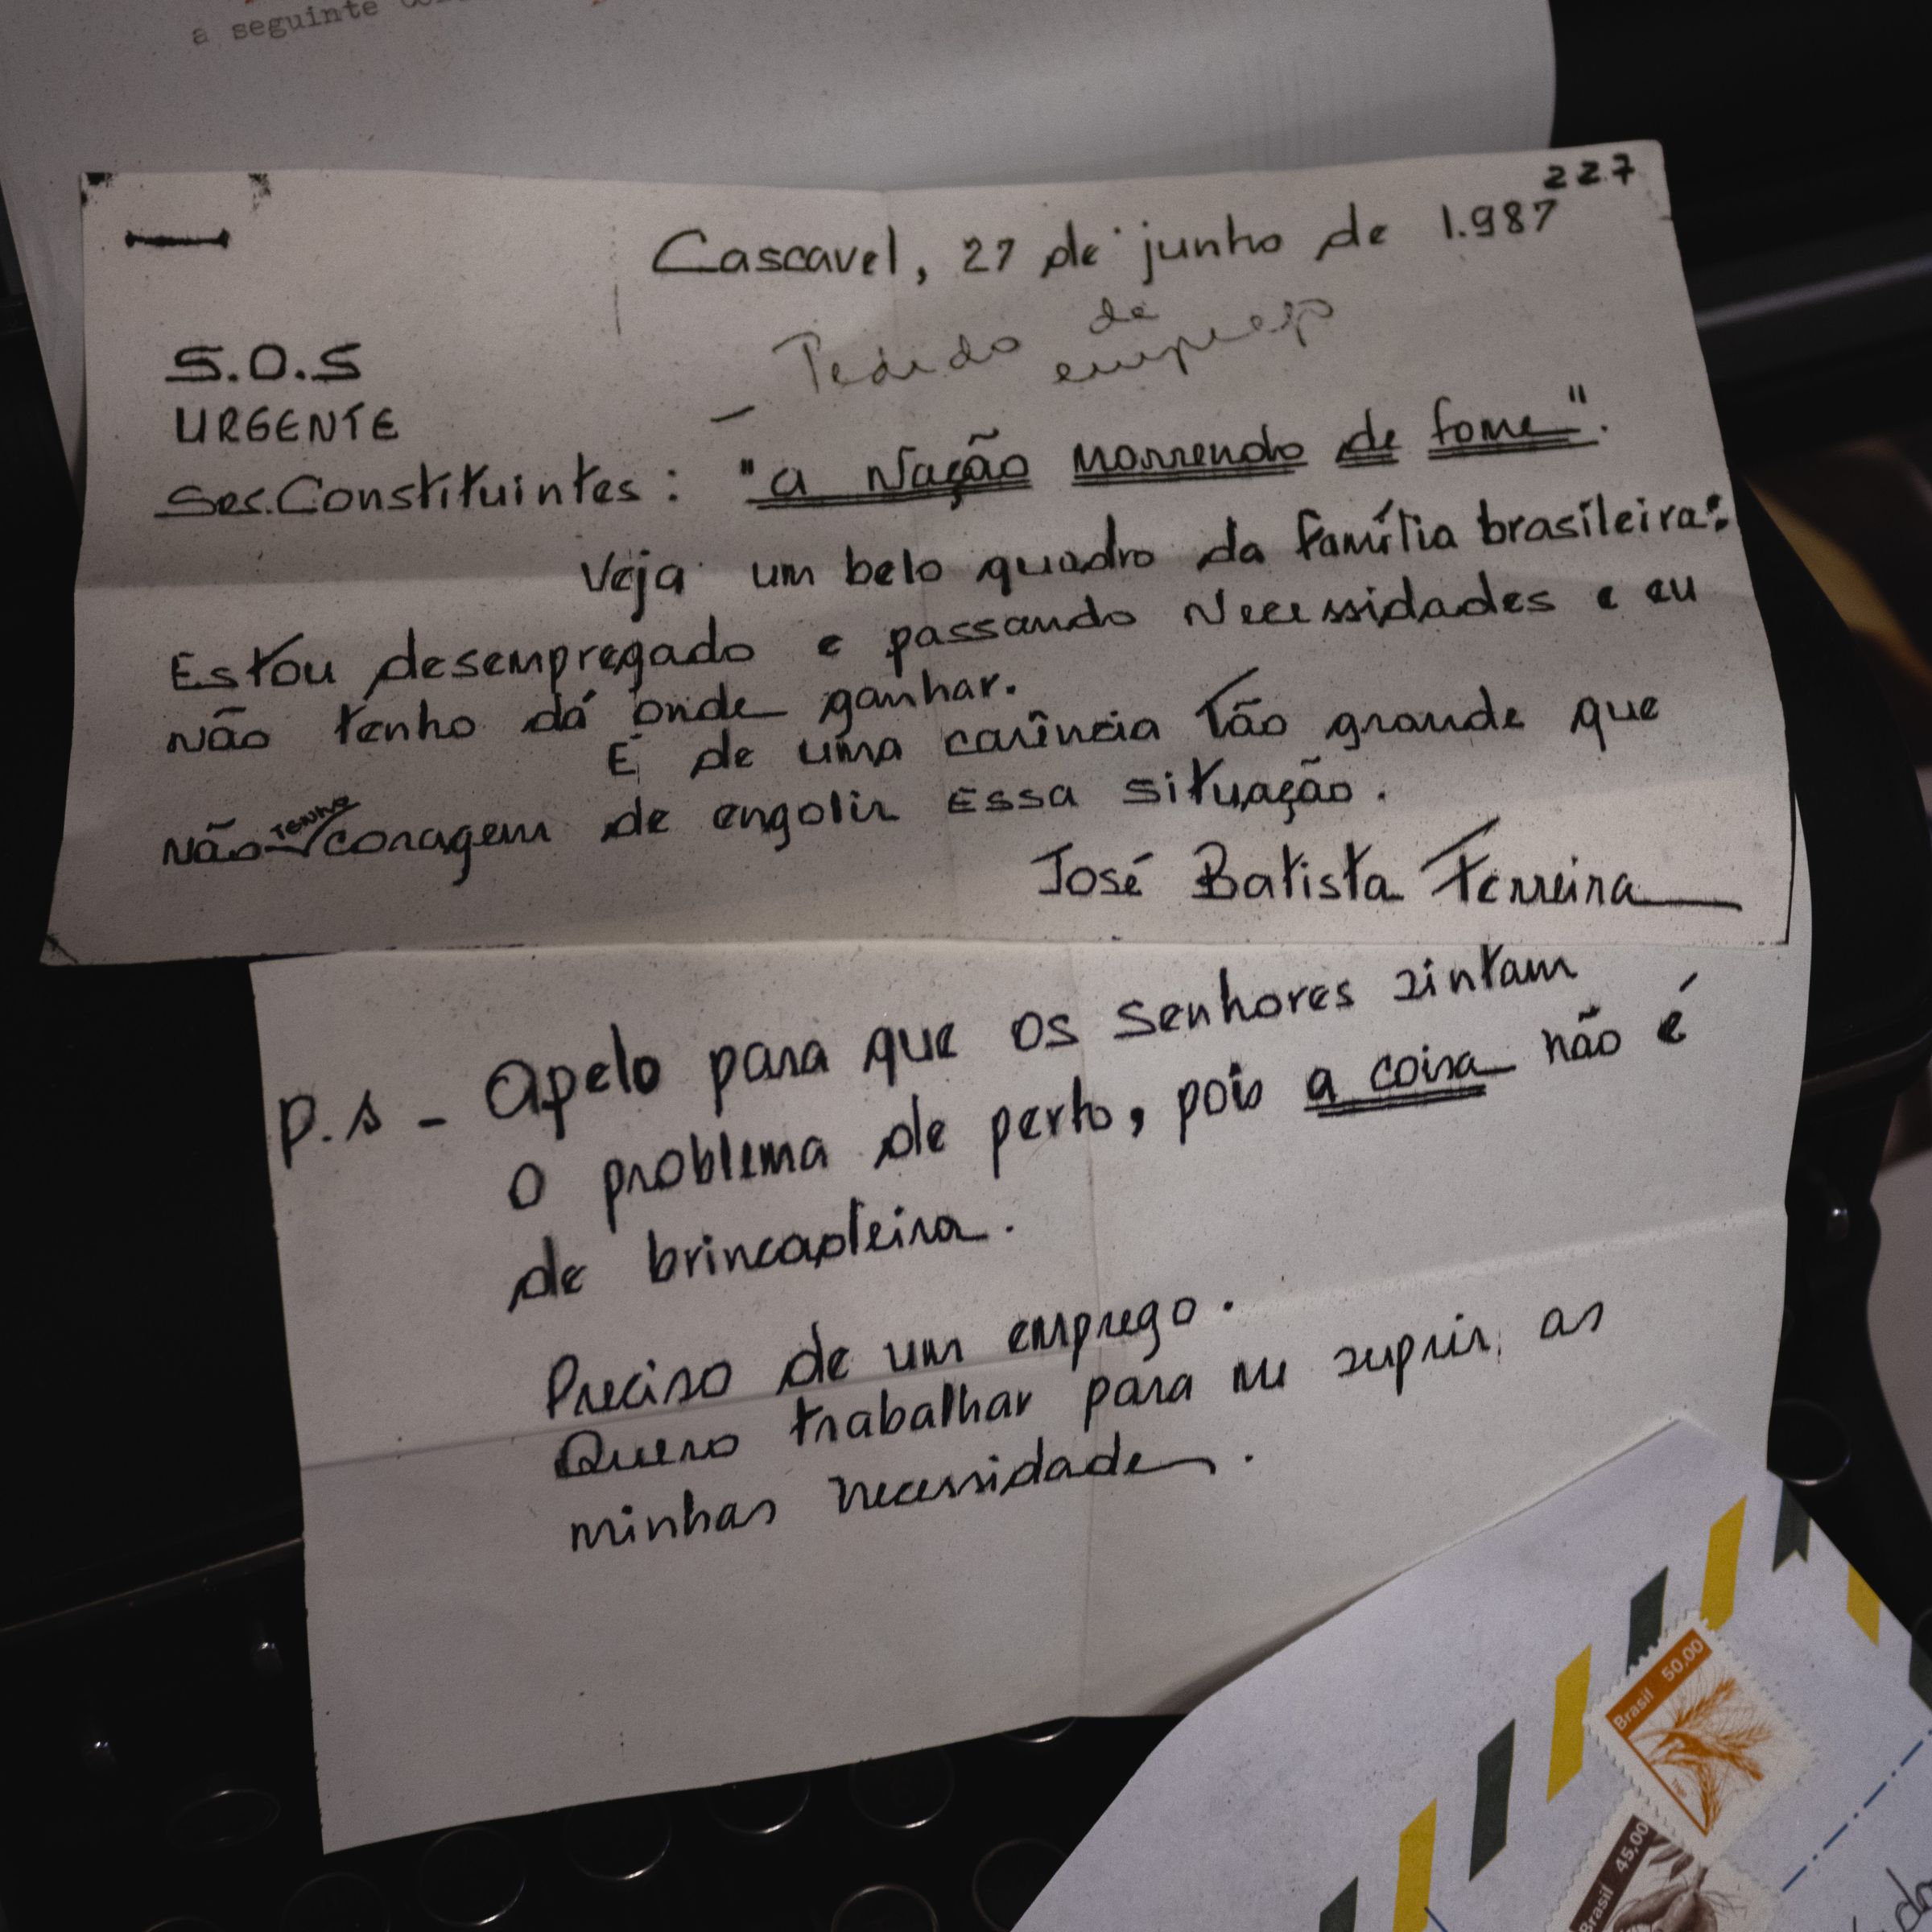 a seguinte
227
Cascavel, 27 de junho de 1.987
Pedido de
emprego
S.O.S
URGENTE
Srs. Constituintes: "a Nação morrendo de fome".
Veja um belo quadro da família brasileira:
Estou desempregado e passando Necessidades e eu
não tenho dá onde ganhar.
É de uma carência tão grande que
não tenho coragem de engolir Essa situação.
José Batista Ferreira
P.s - Apelo para que os senhores sintam
o problema de perto, pois a coisa não é
de brincadeira.
Preciso de um emprego.
Quero trabalhar para me suprir as
minhas necessidade.
Brasil 50,00
Brasil 45,00